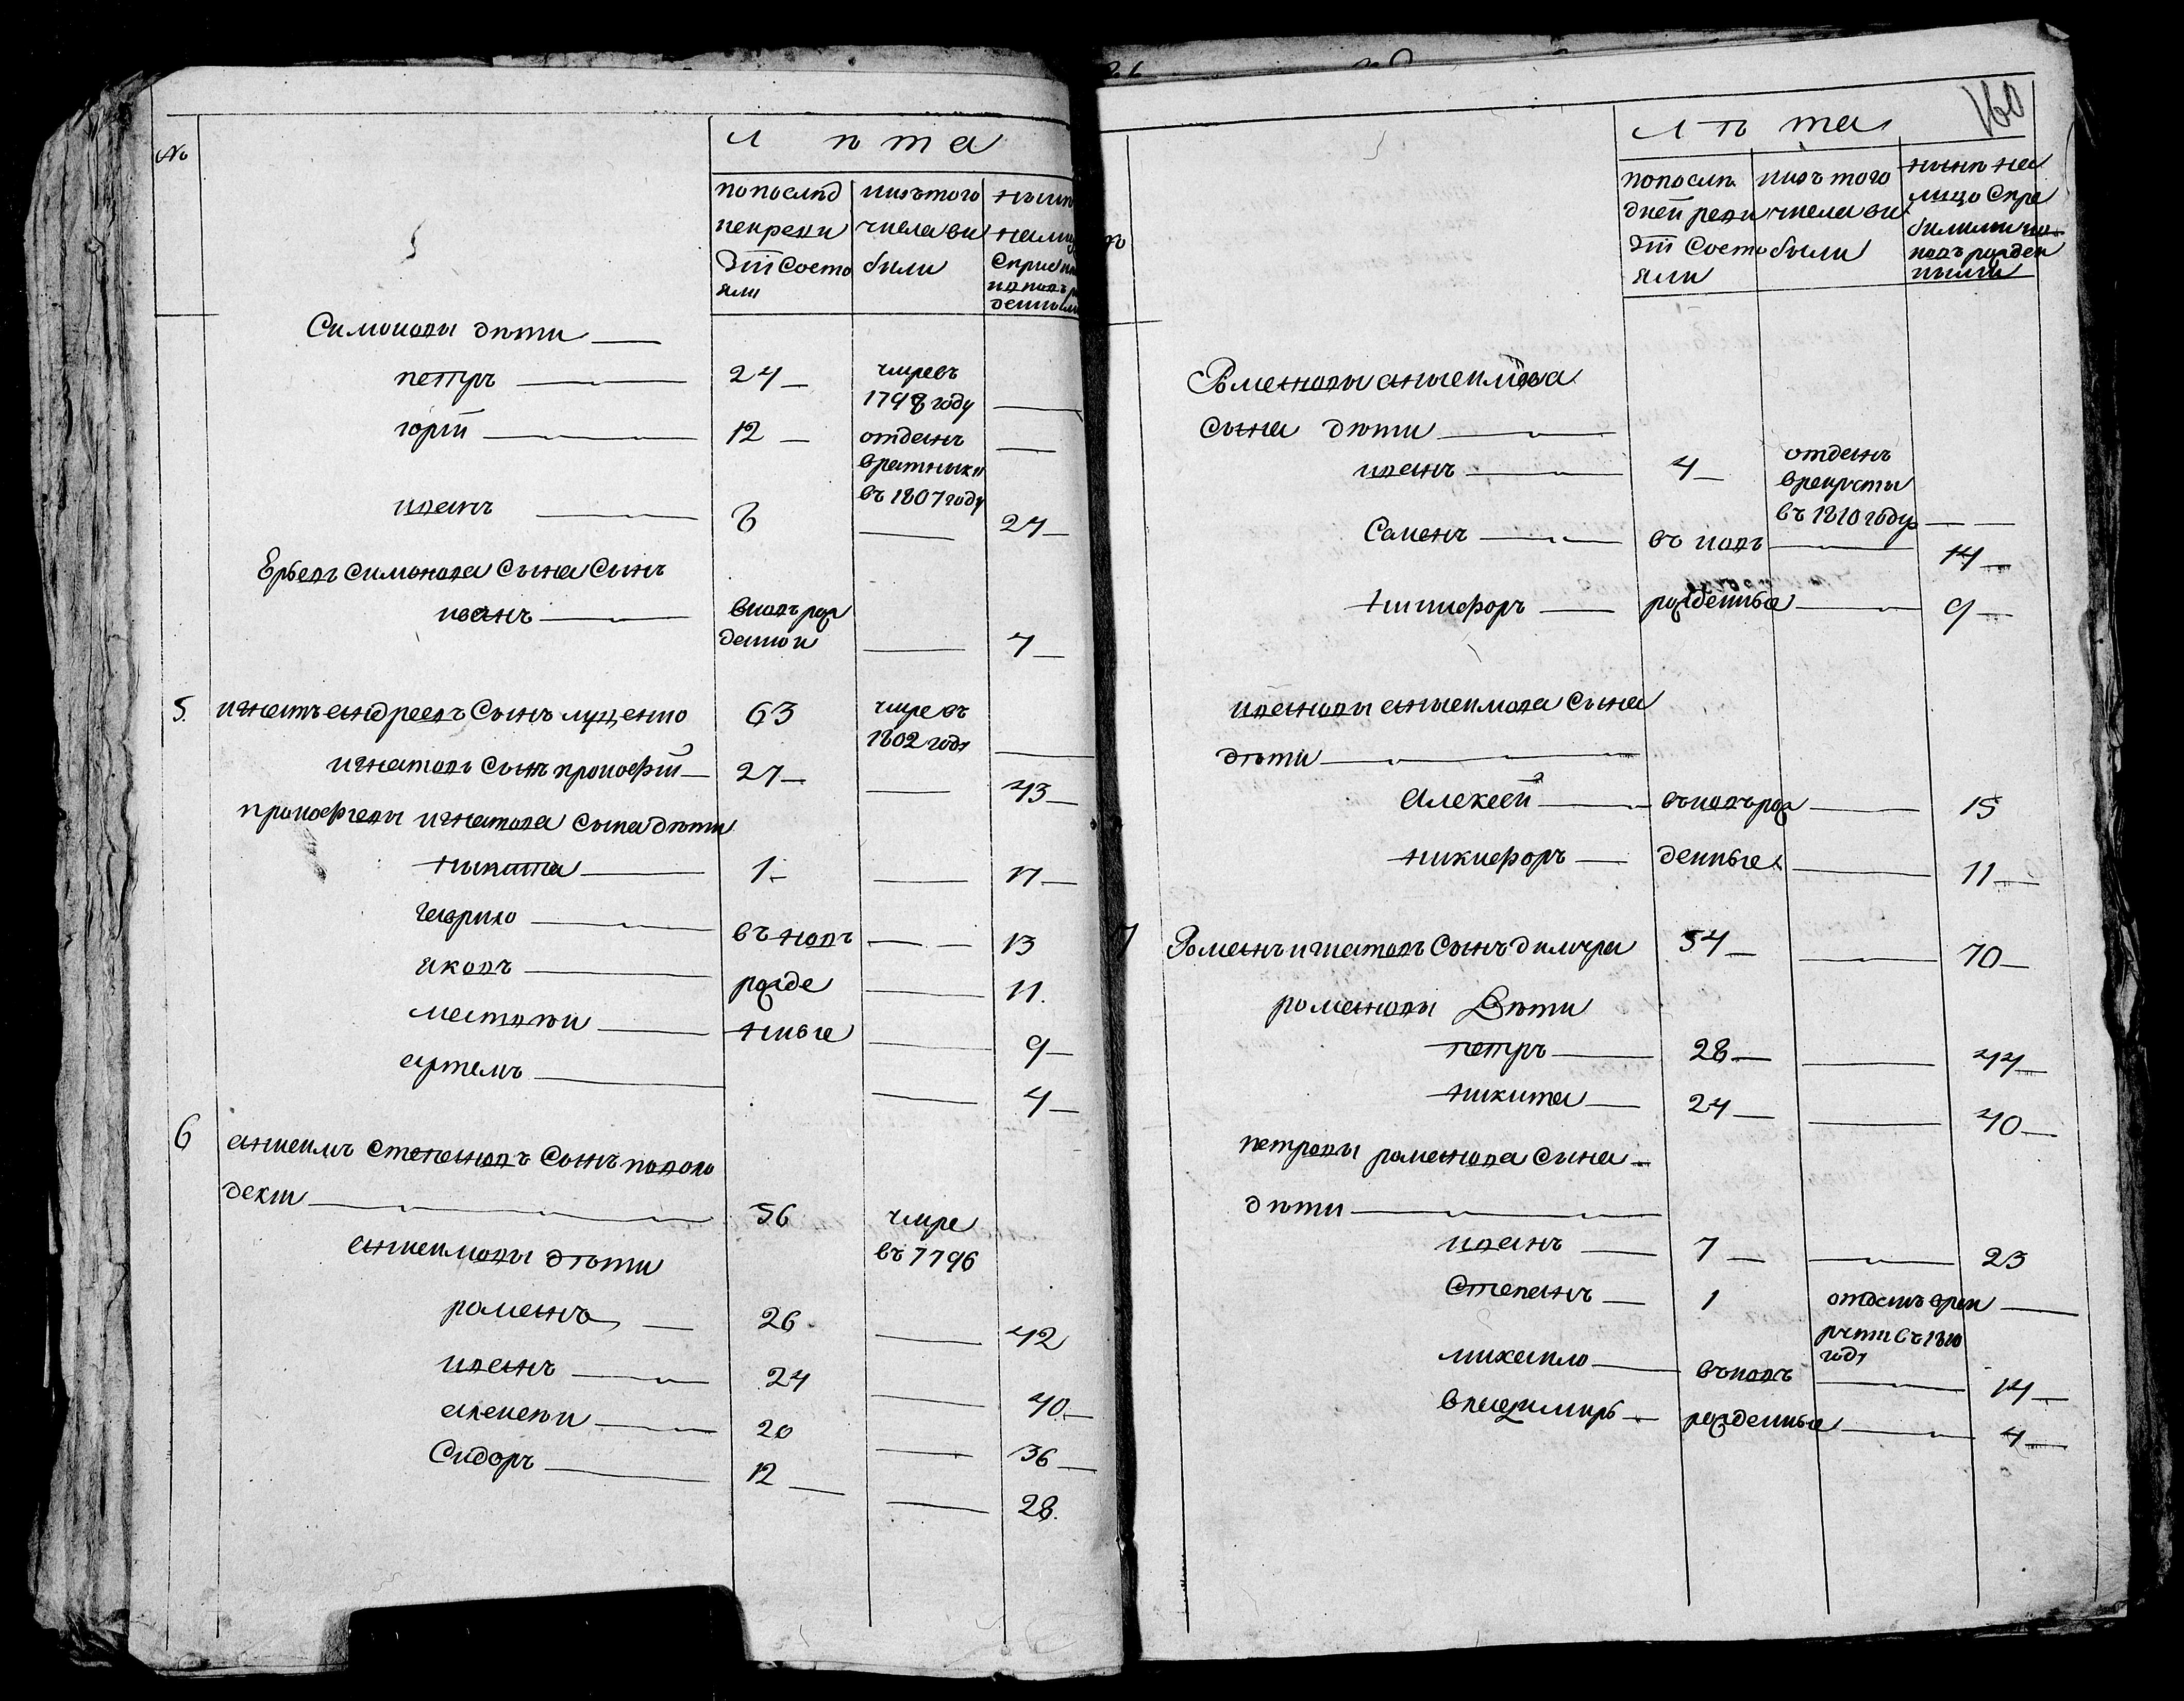 №
Лѣта
попослѣд
ней реви
зіи Состо
яли
изъ того
числа вы
были
Симоновы дѣти
петръ 24 умре въ
1798 году
юрiй 12 отданъ
вратники
въ 1807 году
иванъ 8 24
Симонова Сына Сынъ
иванъ вновь рож
денной 7
5. игнатъ андреевъ Сынъ луценко 63 умре въ
1802 году
игнатовъ Сынъ прокофiй 27 43
прокофьевы игнатова Сына дѣти
никита 1 17
гаврило въ новъ 13
яковъ рожде 11.
матвѣй нные 9
артемъ 4
6 анисимъ Степановъ Сынъ
56 умре
въ 1796
анисимовы дѣти
романъ 26 42
иванъ 24 40
алексѣй 20 36
Сидоръ 12 28.
160
Лѣта
попослѣ
дней реви
зiи Состо
яли
изъ того
числа вы
были
нынѣ на
лицо Спри
былыми и
новъ рожден
ными
Романовы анисимова
Сына дѣти
иванъ 4 отданъ
врекруты
въ 1810 году
Саменъ въ новъ 14
никифоръ рожденные 9
ивановы анисимова Сына
дѣти
Алексѣй въ новъ рож 15
никифоръ денные 11
7 Романъ игнатовъ Сынъ димура 54 70
романовы Дѣти
петръ 28 44
никита 24 40
петровы романова Сына
дѣти
иванъ 7 23
Степанъ 1 отданъ врек
руты въ 1810
году
михайло въ новъ 14
владимиръ рожденные 4